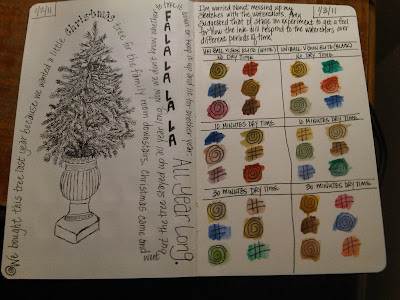 1/2/11
We bought this tree last year because we wanted a little Christmas tree for the family room downstairs. Christmas came and went
but the tree stayed
We don't know whether to
FA LA LA LA LA
All Year Long.
1/3/11
I'm worried about messing up my
sketches with the watercolors. Amy
suggested that I
an experiment to get a feel
for how the ink will respond to the watercolors over
different periods of time.
UNIBALL VISION ELITE (WHITE)
UNIBALL VISION ELITE (BLACK)
NO DRY TIME
NO DRY TIME
10 MINUTES DRY TIME
10 MINUTES DRY TIME
30 MINUTES DRY TIME
30 MINUTES DRY TIME